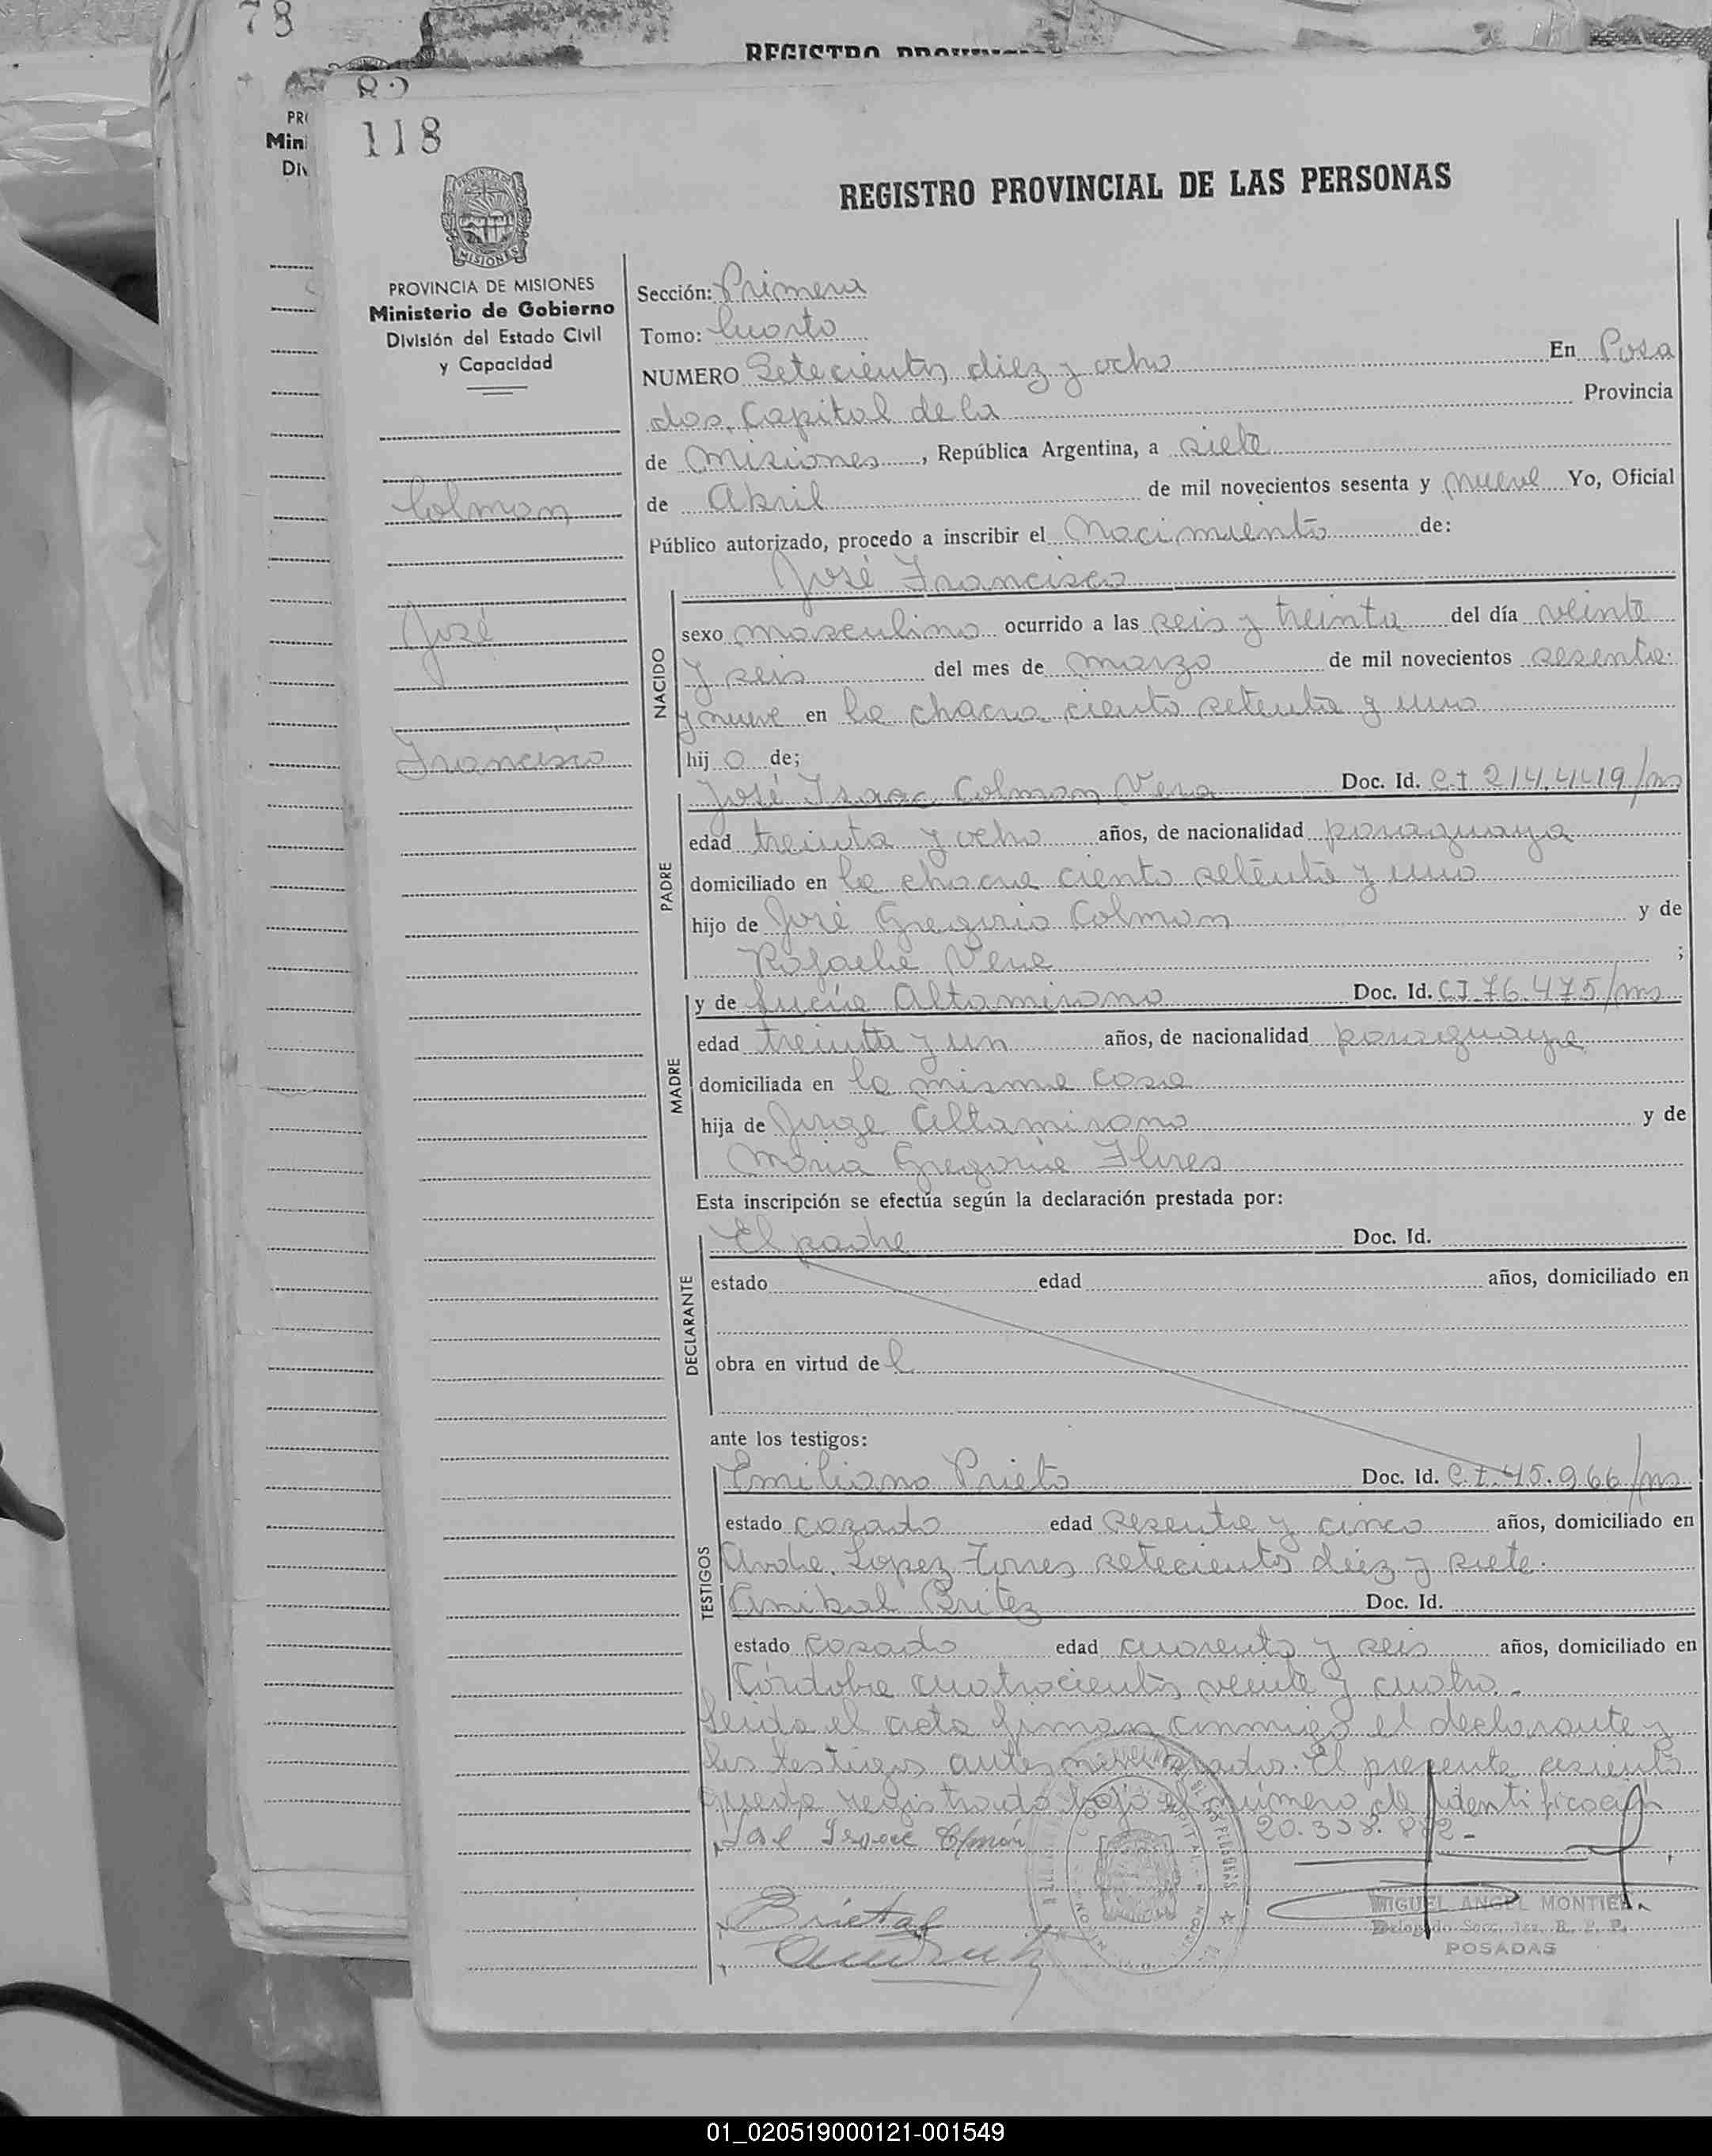 78
REGISTRO
82
118
PROVINCIA DE MISIONES
Ministerio de Gobierno
División del Estado Civil
y Capacidad
Colman
José
Francisco
REGISTRO PROVINCIAL DE LAS PERSONAS
Sección: Primera
Tomo: Cuarto
NUMERO Setecientos diez y ocho En Posa
das, Capital de la Provincia
de Misiones, República Argentina, a siete
de Abril de mil novecientos sesenta y nueve Yo, Oficial
Público autorizado, procedo a inscribir el Nacimiento de:
José Francisco
NACIDO
sexo masculino ocurrido a las seis y treinta del día veinte
y seis del mes de marzo de mil novecientos sesenta
y nueve en la chacra ciento setenta y uno
hij o de;
PADRE
José Isaac Colman Vera Doc. Id. C.I 214.4419/ms
edad treinta y ocho años, de nacionalidad paraguaya
domiciliado en la chacra ciento setenta y uno
hijo de José Gregorio Colman y de
Rafaela Vera ;
MADRE
y de Lucía Altamirano Doc. Id. C.I. 76.475/ms
edad treinta y un años, de nacionalidad paraguaya
domiciliada en la misma casa
hija de Jorge Altamirano y de
Maria Gregoria Flores
Esta inscripción se efectúa según la declaración prestada por:
DECLARANTE
El padre Doc. Id.
estado edad años, domiciliado en
obra en virtud de l
ante los testigos:
TESTIGOS
Emiliano Prieto Doc. Id. C.I. 45.966/ms
estado casado edad sesenta y cinco años, domiciliado en
Avdhe. Lopez Torres setecientos diez y siete.
Anibal Britez Doc. Id.
estado casado edad cuarenta y seis años, domiciliado en
Córdoba cuatrocientos veinte y cuatro.-
Leida el acta firman conmigo el declarante y
los testigos antes mencionados. El presente asiento
queda registrado bajo el número de identificación
José Isaac Colmán 20.338.
MIGUEL ANGEL MONTIEL
Delegado Secc. 1ra. R. P. P.
POSADAS
01_020519000121-001549